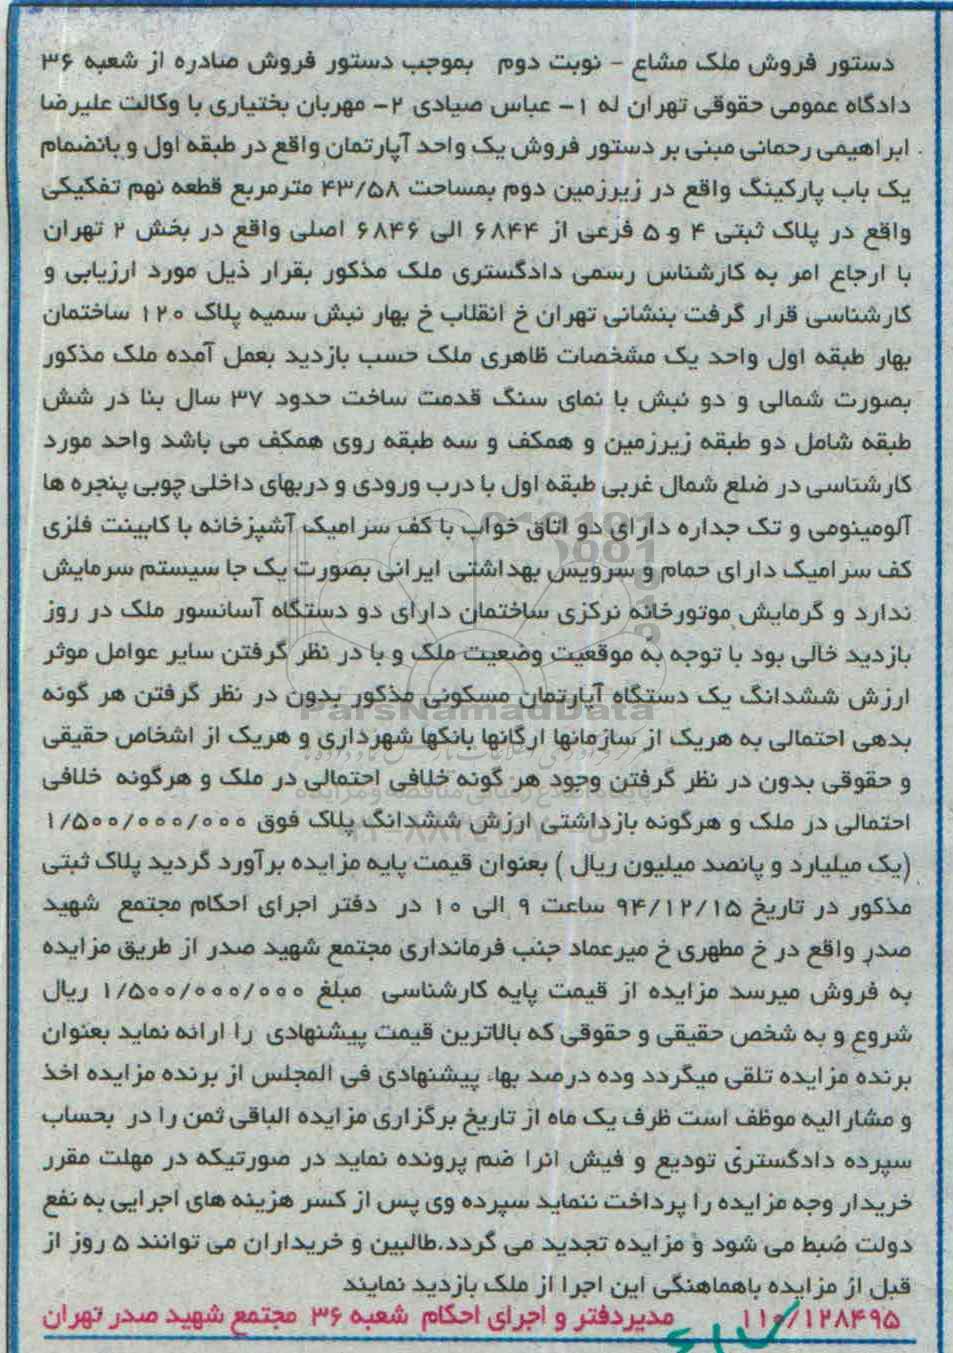 دستور فروش ملک مشاع - نوبت دوم بموجب دستور فروش صادره از شعبه ۳۶
دادگاه عمومی حقوقی تهران له ۱- عباس صیادی ۲- مهربان بختیاری با وکالت علیرضا
ابراهیمی رحمانی مبنی بر دستور فروش یک واحد آپارتمان واقع در طبقه اول و بانضمام
یک باب پارکینگ واقع در زیرزمین دوم بمساحت ۴۳/۵۸ مترمربع قطعه نهم تفکیکی
واقع در پلاک ثبتی ۴ و ۵ فرعی از ۶۸۴۴ الی ۶۸۴۶ اصلی واقع در بخش ۲ تهران
با ارجاع امر به کارشناس رسمی دادگستری ملک مذکور بقرار ذیل مورد ارزیابی و
کارشناسی قرار گرفت بنشانی تهران خ انقلاب خ بهار نبش سمیه پلاک ۱۲۰ ساختمان
بهار طبقه اول واحد یک مشخصات ظاهری ملک حسب بازدید بعمل آمده ملک مذکور
بصورت شمالی و دو نبش با نمای سنگ قدمت ساخت حدود ۳۷ سال بنا در شش
طبقه شامل دو طبقه زیرزمین و همکف و سه طبقه روی همکف می باشد واحد مورد
کارشناسی در ضلع شمال غربی طبقه اول با درب ورودی و دربهای داخلی چوبی پنجره ها
آلومینومی و تک جداره دارای دو اتاق خواب با کف سرامیک آشپزخانه با کابینت فلزی
کف سرامیک دارای حمام و سرویس بهداشتی ایرانی بصورت یک جا سیستم سرمایش
ندارد و گرمایش موتورخانه نرکزی ساختمان دارای دو دستگاه آسانسور ملک در روز
بازدید خالی بود با توجه به موقعیت وضعیت ملک و با در نظر گرفتن سایر عوامل موثر
ارزش ششدانگ یک دستگاه آپارتمان مسکونی مذکور بدون در نظر گرفتن هر گونه
بدهی احتمالی به هریک از سازمانها ارگانها بانکها شهرداری و هریک از اشخاص حقیقی
و حقوقی بدون در نظر گرفتن وجود هر گونه خلافی احتمالی در ملک و هرگونه خلافی
احتمالی در ملک و هرگونه بازداشتی ارزش ششدانگ پلاک فوق ۱/۵۰۰/۰۰۰/۰۰۰
(یک میلیارد و پانصد میلیون ریال ) بعنوان قیمت پایه مزایده برآورد گردید پلاک ثبتی
مذکور در تاریخ ۹۴/۱۲/۱۵ ساعت ۹ الی ۱۰ در دفتر اجرای احکام مجتمع شهید
صدر واقع در خ مطهری خ میرعماد جنب فرمانداری مجتمع شهید صدر از طریق مزایده
به فروش میرسد مزایده از قیمت پایه کارشناسی مبلغ ۱/۵۰۰/۰۰۰/۰۰۰ ریال
شروع و به شخص حقیقی و حقوقی که بالاترین قیمت پیشنهادی را ارائه نماید بعنوان
برنده مزایده تلقی میگردد وده درصد بهاء پیشنهادی فی المجلس از برنده مزایده اخذ
و مشارالیه موظف است ظرف یک ماه از تاریخ برگزاری مزایده الباقی ثمن را در بحساب
سپرده دادگستری تودیع و فیش انرا ضم پرونده نماید در صورتیکه در مهلت مقرر
خریدار وجه مزایده را پرداخت ننماید سپرده وی پس از کسر هزینه های اجرایی به نفع
دولت ضبط می شود و مزایده تجدید می گردد.طالبین و خریداران می توانند ۵ روز از
قبل از مزایده باهماهنگی این اجرا از ملک بازدید نمایند
۱۱۰/۱۲۸۴۹۵ مدیردفتر و اجرای احکام شعبه ۳۶ مجتمع شهید صدر تهران
ParsNamadData